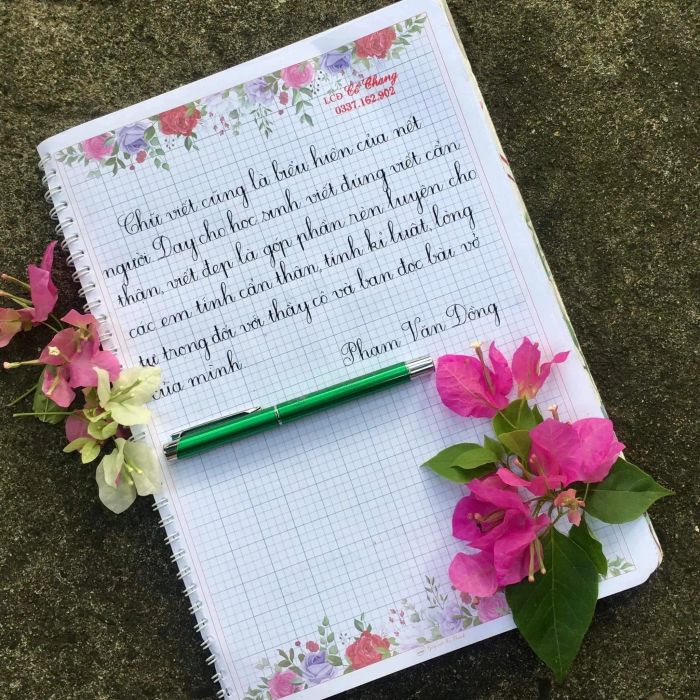 LCĐ Cô Chang
0337.162.902
Chữ viết cũng là biểu hiện của nết
người Dạy cho học sinh viết đúng viết cẩn
thận, viết đẹp là góp phần rèn luyện cho
các em tính cẩn thận, tính kỉ luật, lòng
tự trọng đối với thầy cô và bạn đọc bài vở
của mình
Phạm Văn Đồng